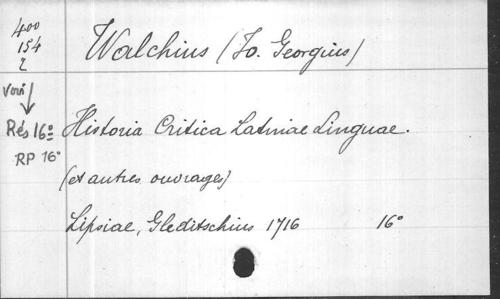 400
154
2
Walchius (Jo. Georgius)
voir
Rés 16º
RP 16º
Historia Critica Latinae Linguae.
(et autres ouvrages)
Lipsiae, Gleditschius 1716 16º